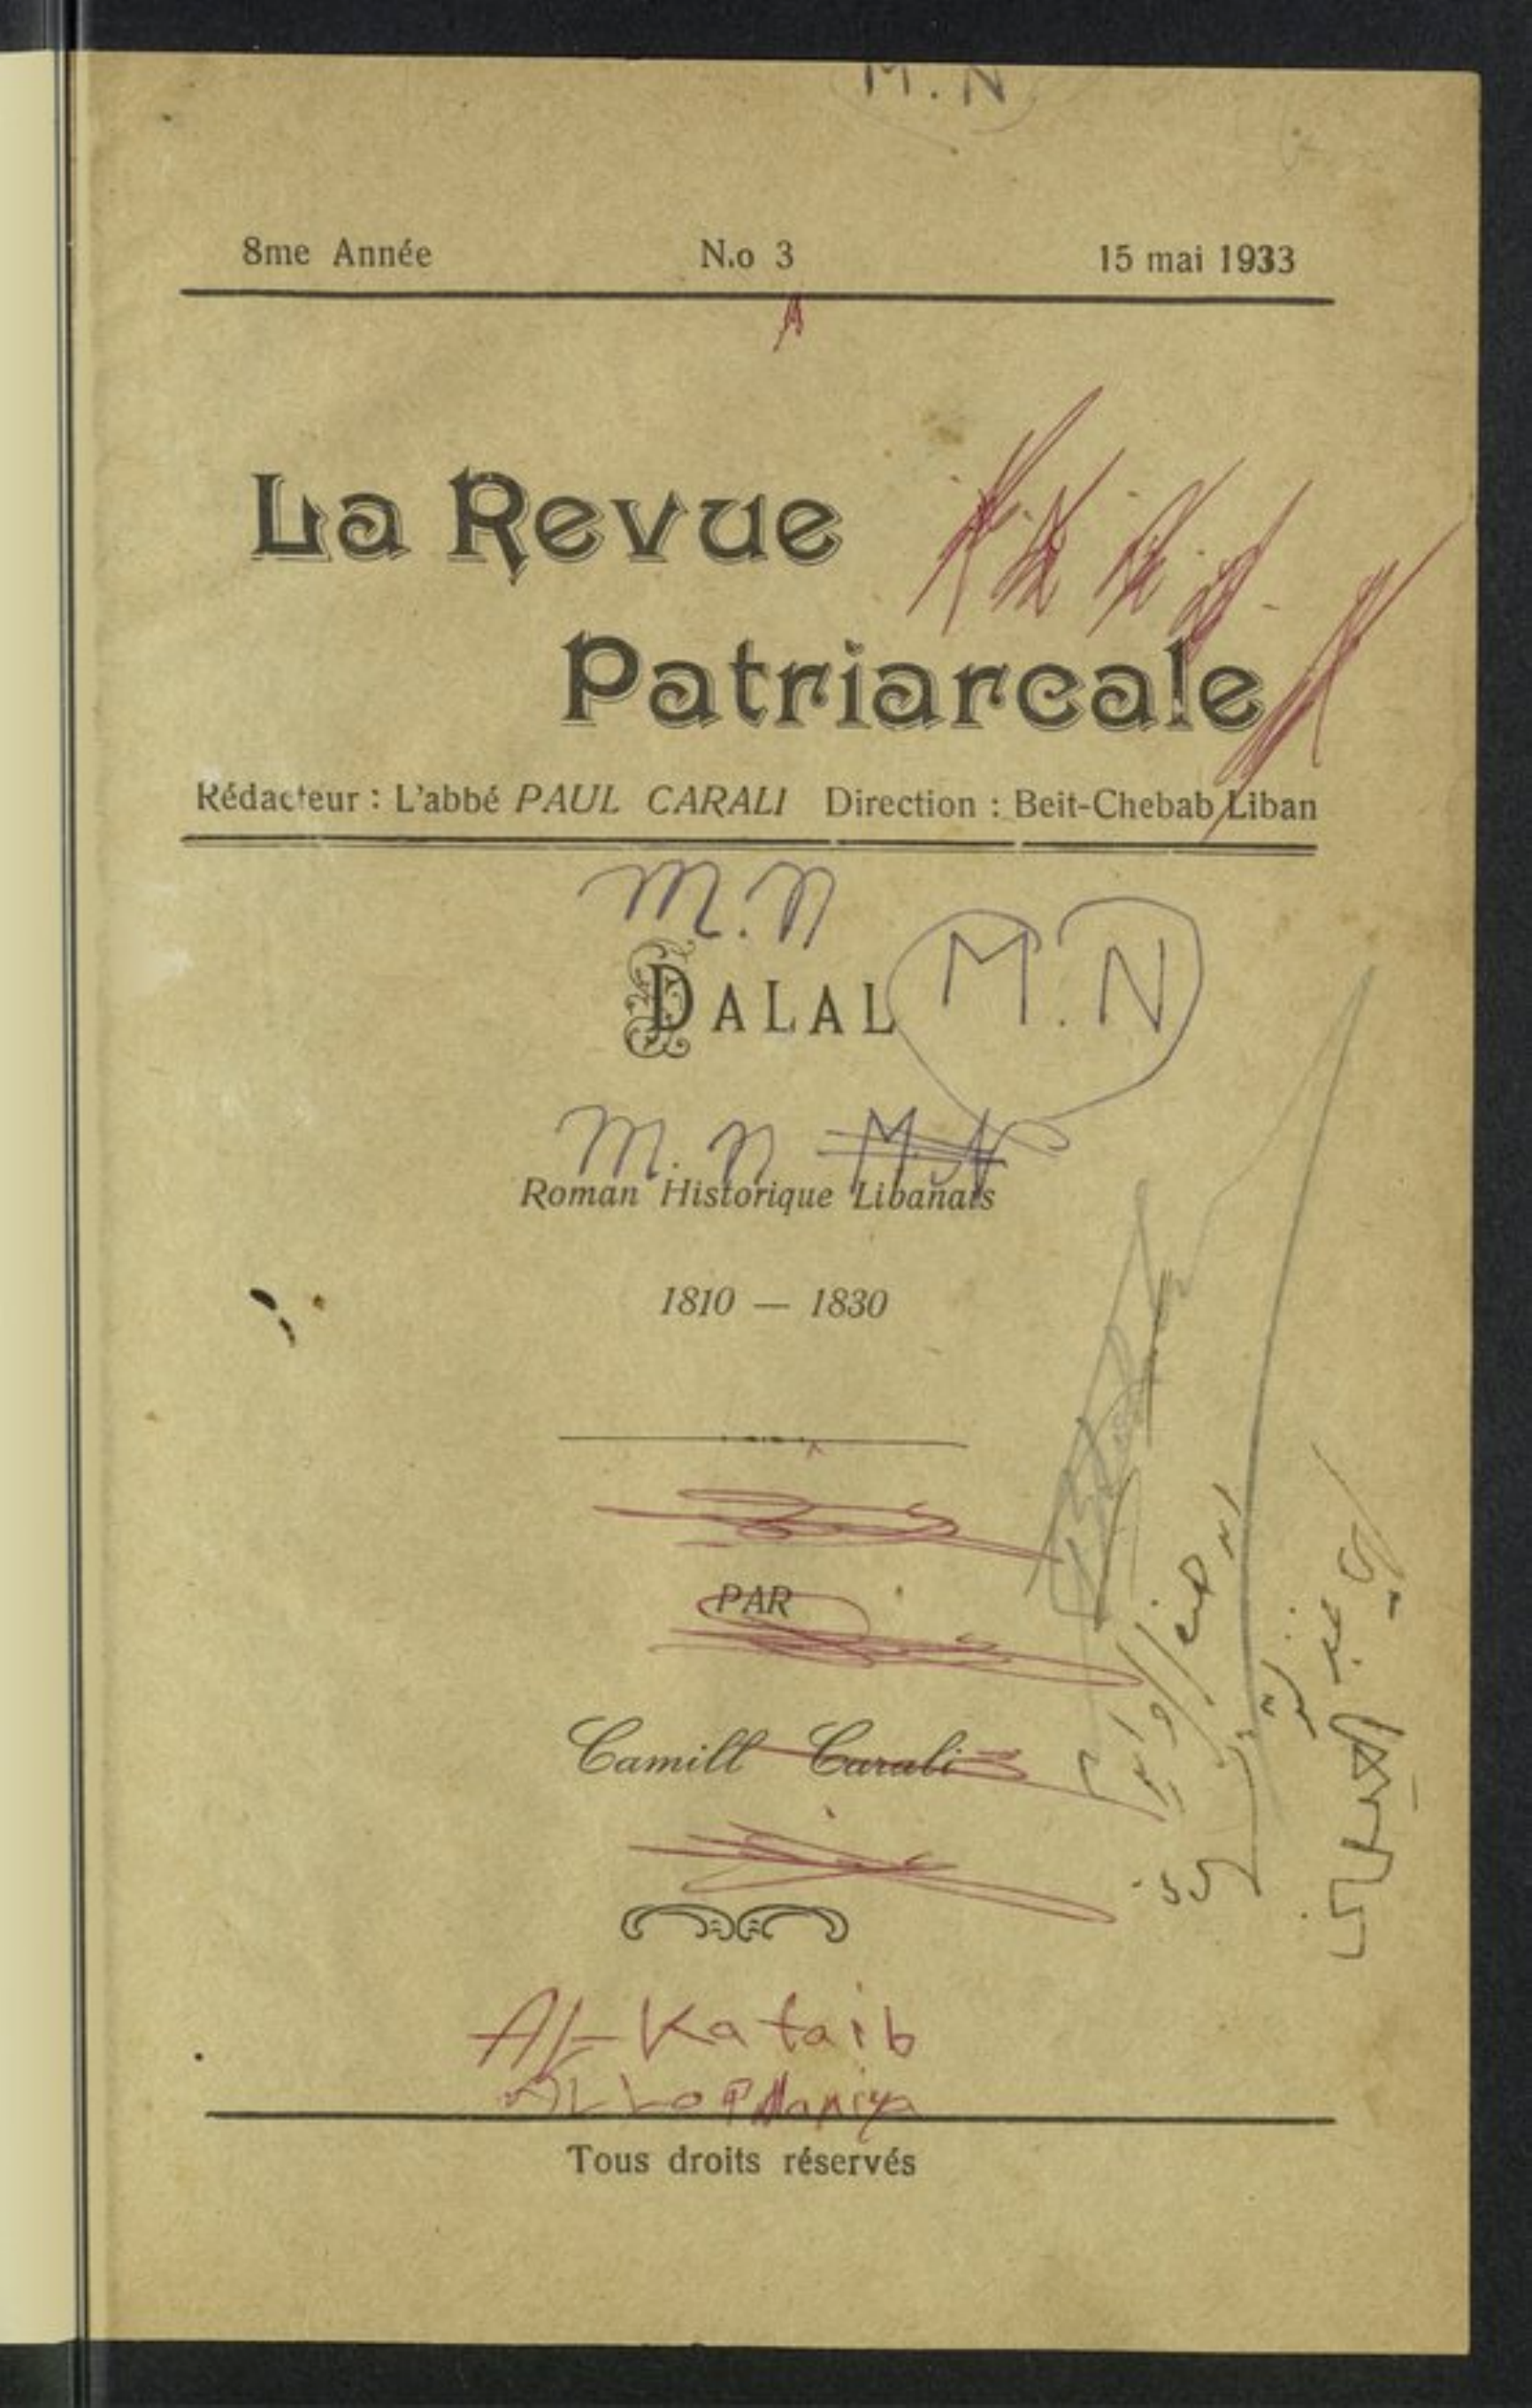 M.N
8me Année N.o 3 15 mai 1933
La Revue
Patriarcale
Rédacteur : L'abbé PAUL CARALI Direction : Beit-Chebab Liban
M.N
DALAL M.N
M.N M.N
Roman Historique Libanais
1810 — 1830
PAR
Camill Carali
Al-Kataib
Tous droits réservés